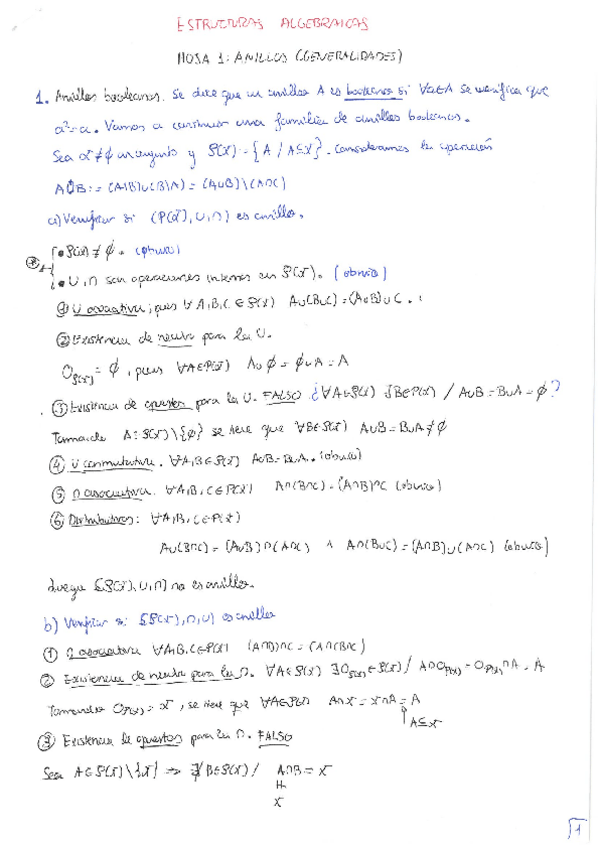 ESTRUCTURAS ALGEBRAICAS
HOJA 1: ANILLOS (GENERALIDADES)
1. Anillos booleanos. Se dice que un anillo A es booleano si ∀a∈A se verifica que
a²=a. Vamos a construir una familia de anillos booleanos.
Sea X≠∅ un conjunto y P(X)={A / A⊆X}. Consideramos la operación
A∪̇B:=(A\B)∪(B\A)=(A∪B)\(A∩C)
a) Verificar si (P(X),∪,∩) es anillo.
• P(X)≠∅. (obvio)
• ∪,∩ son operaciones internas en P(X). (obvio)
① ∪ asociativa; pues ∀A,B,C∈P(X) A∪(B∪C)=(A∪B)∪C.
② Existencia de neutro para la ∪.
O_P(X)=∅, pues ∀A∈P(X) A∪∅=∅∪A=A
③ Existencia de opuestos para la ∪. FALSO ¿∀A∈P(X) ∃B∈P(X) / A∪B=B∪A=∅?
Tomando A∈P(X)\{∅} se tiene que ∀B∈P(X) A∪B=B∪A≠∅
④ ∪ conmutativa. ∀A,B∈P(X) A∪B=B∪A. (obvio)
⑤ ∩ asociativa. ∀A,B,C∈P(X) A∩(B∩C)=(A∩B)∩C (obvio)
⑥ Distributivas: ∀A,B,C∈P(X)
A∪(B∩C)=(A∪B)∩(A∩C) ∧ A∩(B∪C)=(A∩B)∪(A∩C) (obvio)
Luego (P(X),∪,∩) no es anillo.
b) Verificar si (P(X),∩,∪) es anillo
① ∩ asociativa ∀A,B,C∈P(X) (A∩B)∩C=(A∩(B∩C)
② Existencia de neutro para la ∩. ∀A∈P(X) ∃O_P(X)∈P(X) / A∩O_P(X)=O_P(X)∩A=A
Tomando O_P(X)=X, se tiene que ∀A∈P(X) A∩X=X∩A=A
A⊆X
③ Existencia de opuestos para la ∩. FALSO
Sea A∈P(X)\{X} ⇒ ∄B∈P(X) / A∩B=X
X
1